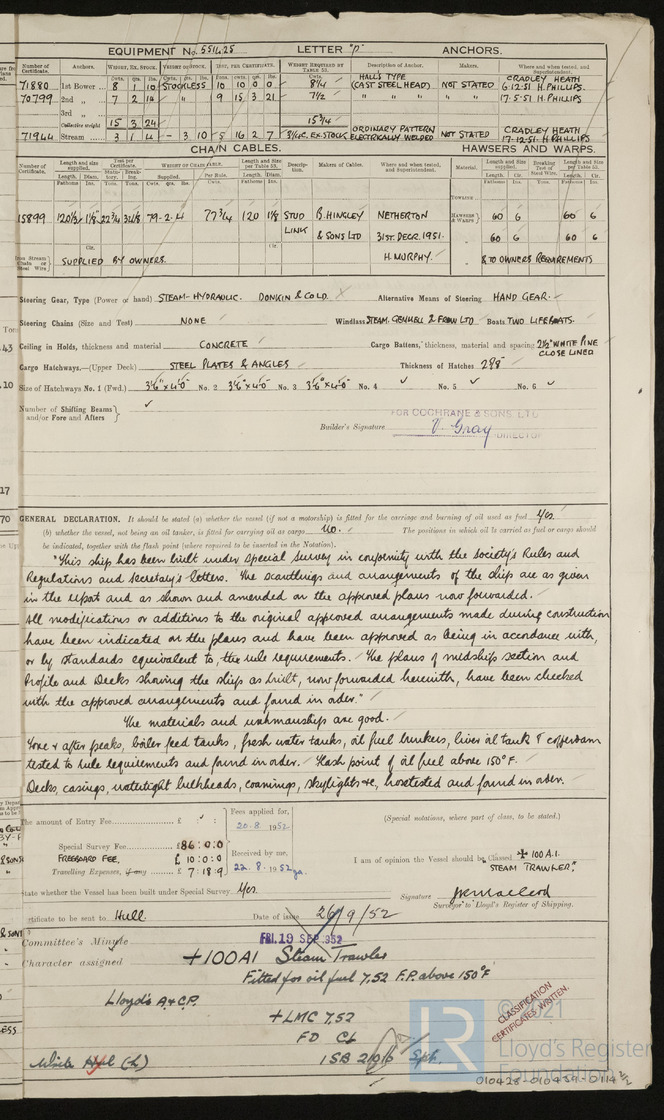 EQUIPMENT No. 551425 LETTER "P" ANCHORS.
Number of Certificate. Anchors. WEIGHT, EX. STOCK. WEIGHT OF STOCK. TEST, PER CERTIFICATE. WEIGHT REQUIRED BY TABLE 53. Description of Anchor. Makers. Where and when tested, and Superintendent.
Cwts. qrs. lbs. Cwts. qrs. lbs. Tons. cwts. qrs. lbs. Cwts.
71880 1st Bower 8 1 10 STOCKLESS 10 10 0 0 8¼ HALL'S TYPE (CAST STEEL HEAD) NOT STATED CRADLEY HEATH 6-12-51 H. PHILLIPS.
70799 2nd „ 7 2 14 „ 9 15 3 21 7½ „ „ „ „ „ 17-5-51 H. PHILLIPS
3rd „
Collective weight 15 3 24 15¾
71944 Stream 3 1 4 - 3 10 5 16 2 7 3¼c. EX. STOCK ORDINARY PATTERN ELECTRICALLY WELDED NOT STATED CRADLEY HEATH 17-12-51. H. PHILLIPS
CHAIN CABLES. HAWSERS AND WARPS.
Number of Certificate. Length and size supplied. Test per Certificate. WEIGHT OF CHAIN CABLE. Length and Size per Table 53. Description. Makers of Cables. Where and when tested, and Superintendent. Material. Length and size supplied. Breaking Test of Steel Wire. Length and Size per Table 53.
Length. Diam. Supplied. Per Rule. Length. Diam. Length. Cir. Length. Cir.
Fathoms Ins. Tons. Tons. Cwts. qrs. lbs. Cwts. Fathoms Ins. Fathoms Ins. Tons. Fathoms Ins.
TOWLINE
15899 120½ 1⅛ 22¾ 34⅛ 79-2-4 77¾ 120 1⅛ STUD LINK B. HINGLEY & SONS LTD NETHERTON 31ST. DECR. 1951. H. MURPHY. HAWSERS & WARPS 60 6 60 6
„ 60 6 60 6
Stream Chain or Steel Wire SUPPLIED BY OWNERS. & TO OWNERS REQUIREMENTS
Steering Gear, Type (Power or hand) STEAM-HYDRAULIC. DONKIN & COLD. Alternative Means of Steering HAND GEAR.
Steering Chains (Size and Test) NONE Windlass STEAM. GEMMELL & FROW LTD Boats TWO LIFEBOATS.
Ceiling in Holds, thickness and material CONCRETE Cargo Battens, thickness, material and spacing 2½" WHITE PINE CLOSE LINED
Cargo Hatchways.—(Upper Deck) STEEL PLATES & ANGLES Thickness of Hatches 2⅜"
Size of Hatchways No. 1 (Fwd.) 3'6" x 4'0" No. 2 3'6" x 4'0" No. 3 3'6" x 4'0" No. 4 No. 5 No. 6
Number of Shifting Beams and/or Fore and Afters
FOR COCHRANE & SONS. LTD
Builder's Signature V. Gray DIRECTOR
GENERAL DECLARATION. It should be stated (a) whether the vessel (if not a motorship) is fitted for the carriage and burning of oil used as fuel Yes.
(b) whether the vessel, not being an oil tanker, is fitted for carrying oil as cargo No. The positions in which oil is carried as fuel or cargo should
be indicated, together with the flash point (where required to be inserted in the Notation).
"This ship has been built under special survey in conformity with the Society's Rules and
Regulations and Secretary's letters. The scantlings and arrangements of the ship are as given
in the report and as shown and amended on the approved plans now forwarded.
All modifications or additions to the original approved arrangements made during construction
have been indicated on the plans and have been approved as being in accordance with,
or by standards equivalent to, the rule requirements. The plans of midship section and
Profile and Decks showing the ship as built, now forwarded herewith, have been checked
with the approved arrangements and found in order."
The materials and workmanship are good.
Fore & after peaks, boiler feed tanks, fresh water tanks, oil fuel bunkers, liver oil tank & cofferdam
tested to rule requirements and found in order. Flash point of oil fuel above 150°F.
Decks, casings, watertight bulkheads, coamings, skylights etc, hosetested and found in order.
The amount of Entry Fee £ Fees applied for, 20-8 1952 (Special notations, where part of class, to be stated.)
Special Survey Fee £86:0:0
FREEBOARD FEE, £10:0:0 Received by me, 22.8.1952
Travelling Expenses, if any £7:18:9
I am of opinion the Vessel should be Classed ✠ 100 A.1. "STEAM TRAWLER."
State whether the Vessel has been built under Special Survey Yes.
Signature J R Macleod
Surveyor to Lloyd's Register of Shipping.
Certificate to be sent to Hull. Date of issue 26/9/52
Committee's Minute FRI. 19 SEP 1952
Character assigned +100A1 Steam Trawler
Fitted for oil fuel 7,52 F.P. above 150°F
Lloyd's A&CP.
+LMC 7.52
FD CL
1 SB
CLASSIFICATION CERTIFICATES WRITTEN.
© 2021
LR Lloyd's Register Foundation
010428-010434-0114 2/2